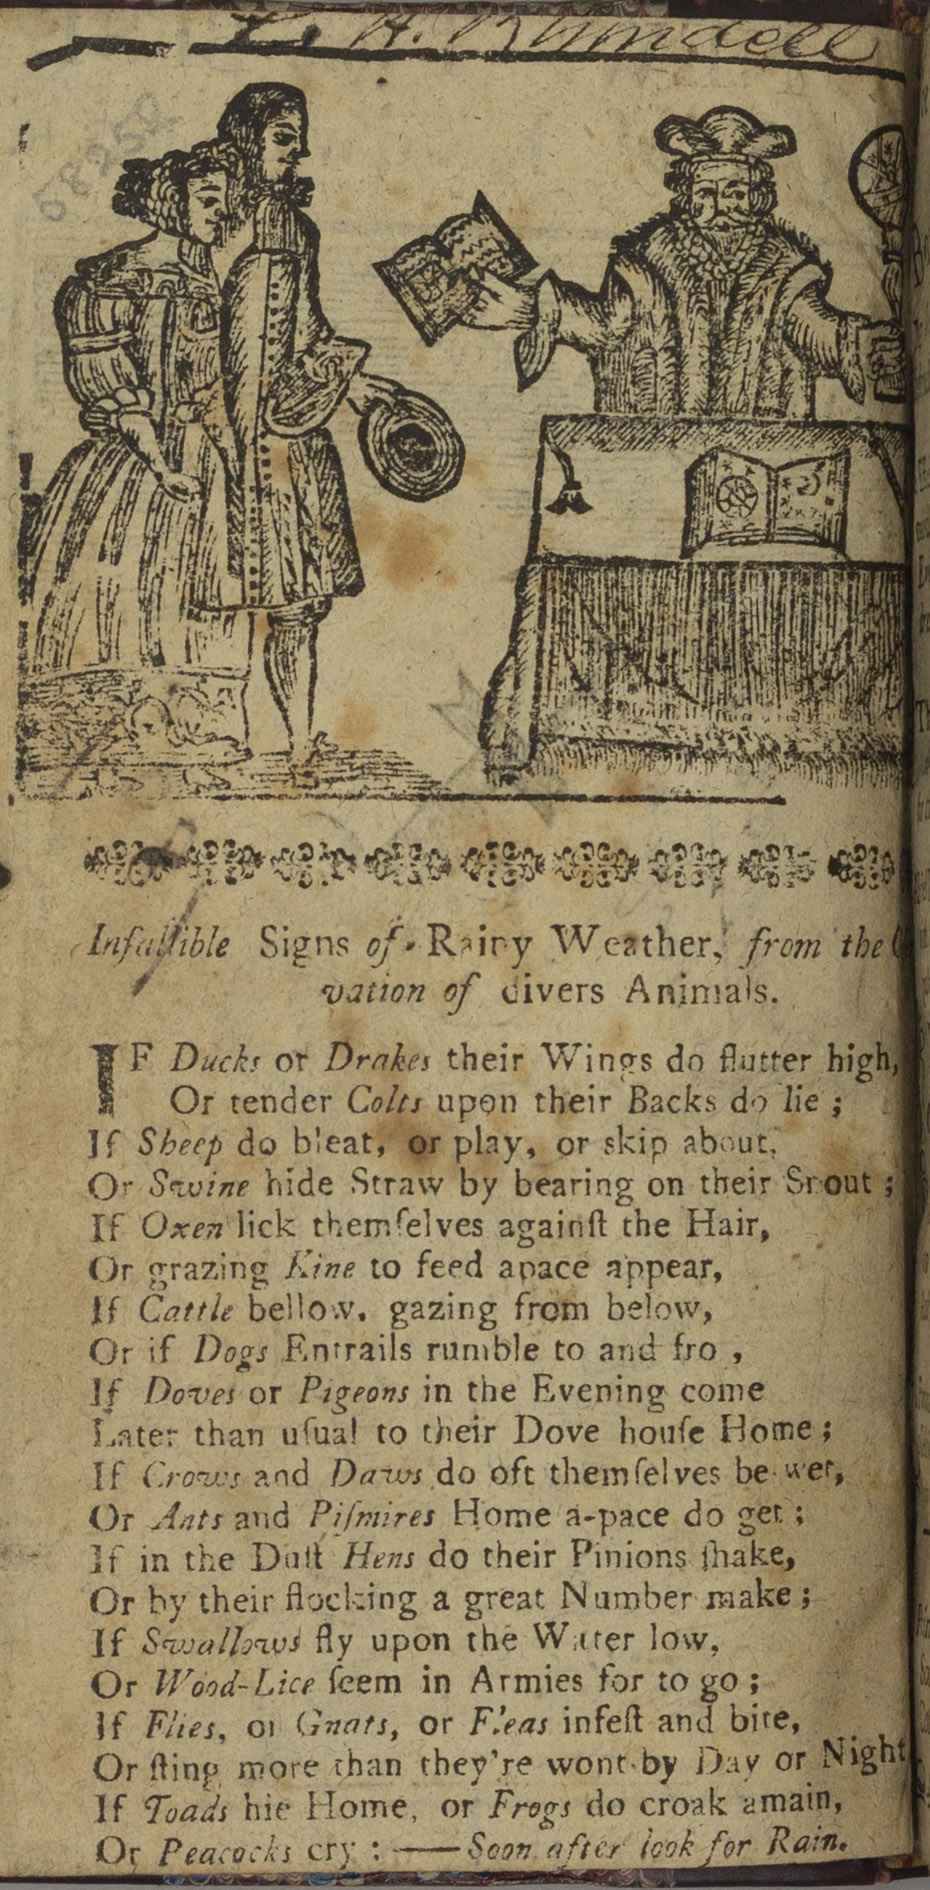 58252
Infallible Signs of Rainy Weather, from the
vation of divers Animals.
IF Ducks or Drakes their Wings do flutter high,
Or tender Colts upon their Backs do lie ;
If Sheep do bleat, or play, or skip about,
Or Swine hide Straw by bearing on their Snout ;
If Oxen lick themſelves againſt the Hair,
Or grazing Kine to feed apace appear,
If Cattle bellow, gazing from below,
Or if Dogs Entrails rumble to and fro ,
If Doves or Pigeons in the Evening come
Later than uſual to their Dove houſe Home ;
If Crows and Daws do oft themſelves be-wet,
Or Ants and Piſmires Home a-pace do get ;
If in the Duſt Hens do their Pinions ſhake,
Or by their flocking a great Number make ;
If Swallows fly upon the Water low,
Or Wood-Lice ſeem in Armies for to go ;
If Flies, or Gnats, or Fleas infeſt and bite,
Or ſting more than they're wont by Day or Night
If Toads hie Home, or Frogs do croak amain,
Or Peacocks cry : —— Soon after look for Rain.